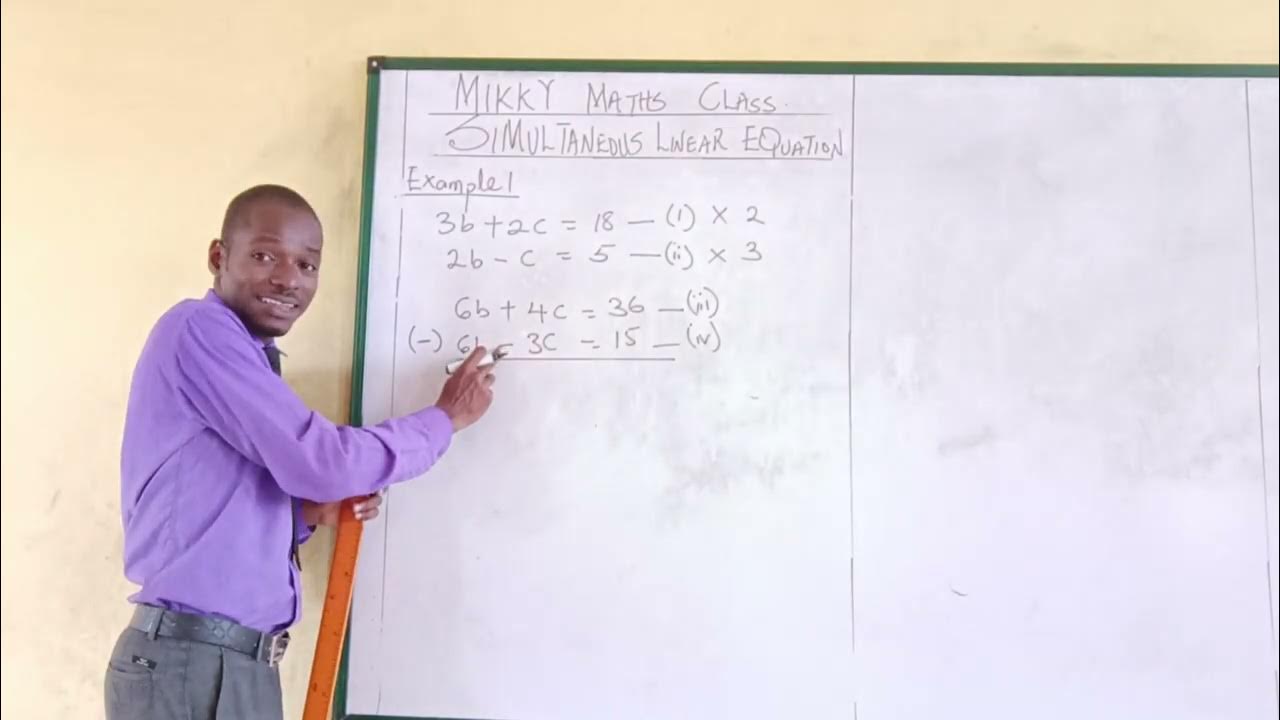 MIKKY MATHS CLASS.
SIMULTANEOUS LINEAR EQUATION
Example 1
3b + 2c = 18 — (i) × 2
2b - c = 5 — (ii) × 3
6b + 4c = 36 — (iii)
(-) 6b - 3c = 15 — (iv)